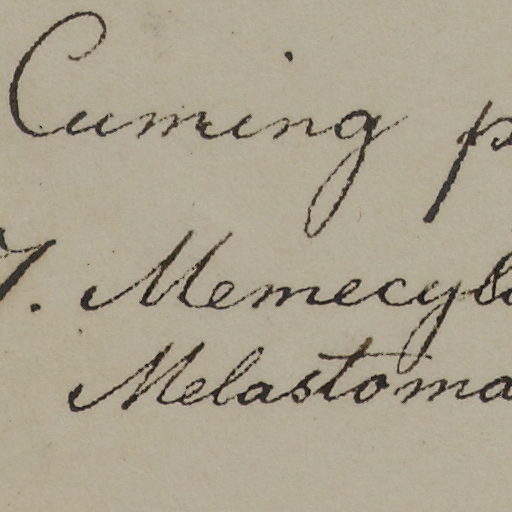 Cuming p
7. Memecylo
Melastoma